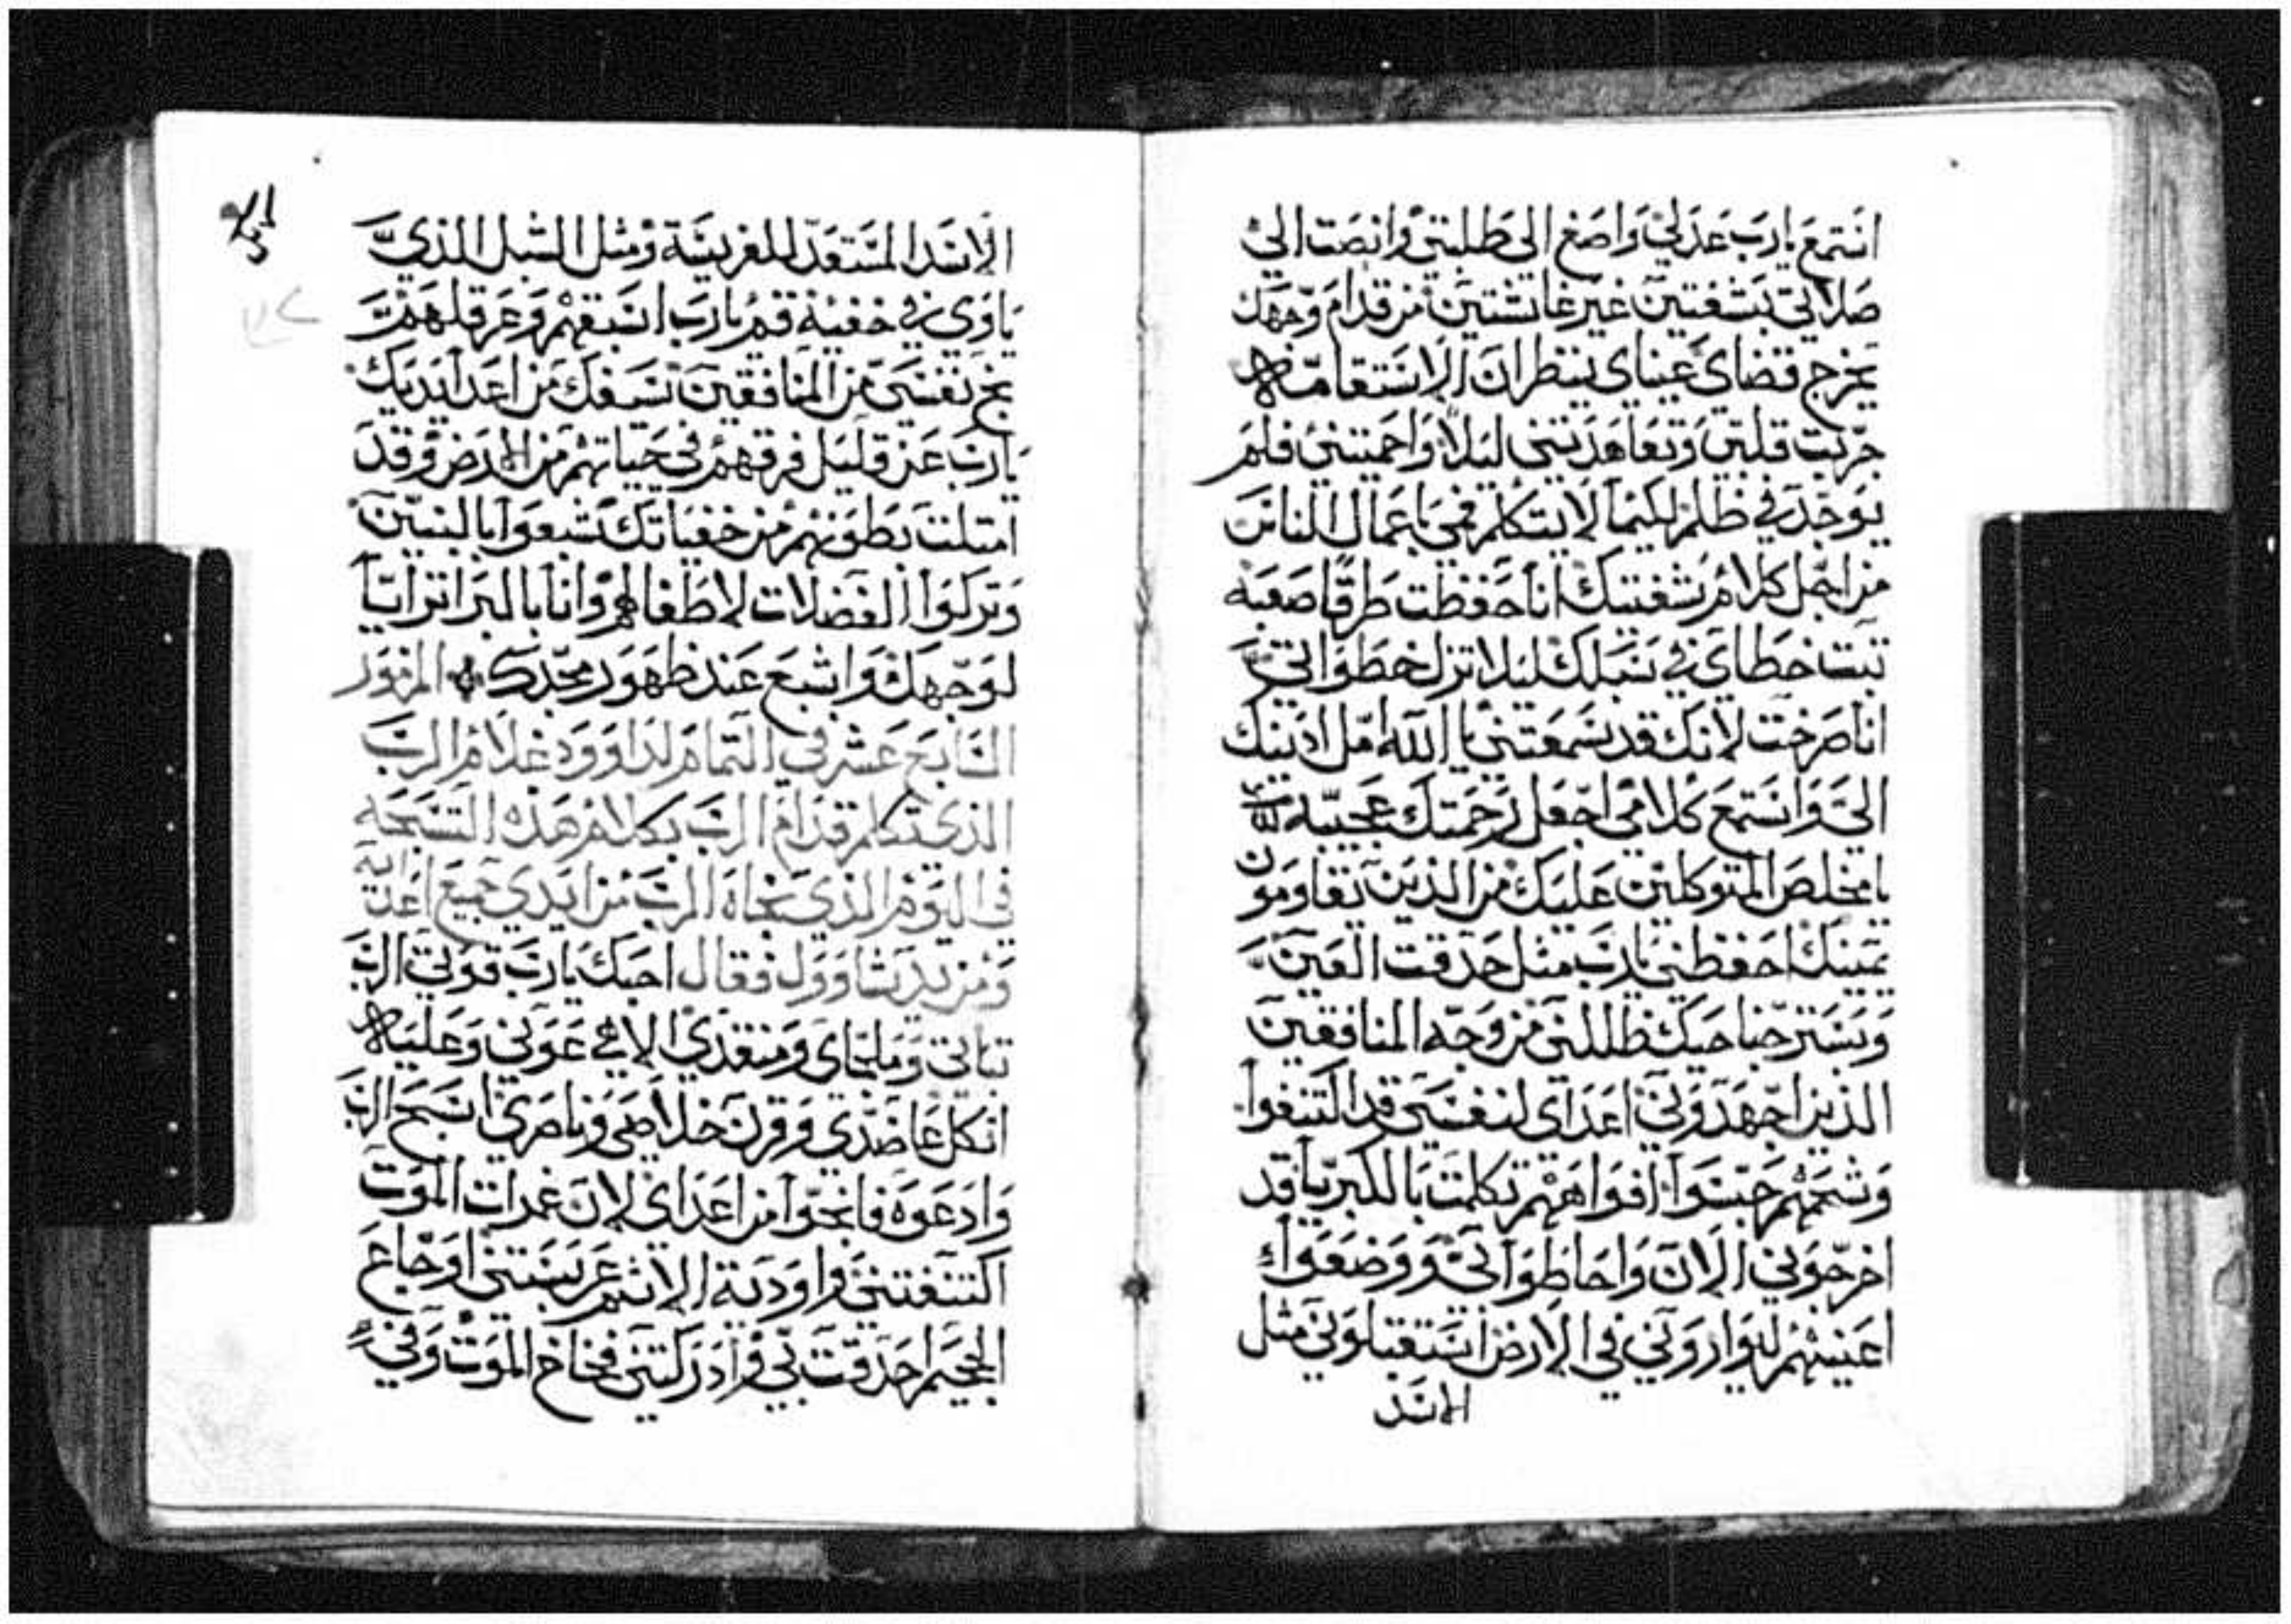 انتمع يارب عدلي واصغ الى طلبتي وانصت الى
صلاتي بشفتين غير غاشتين من قدام وجهك
يخرج قضاي عيناي ينظران الاستقامه
جربت قلبي وتعاهدتني ليلا واحميتني فلم
يوجد في ظلم لكيما لا يتكلم فمي باعمال الناس
من اجل كلام شفتيك انا حفظت طرقا صعبه
تبت خطاي في سبلك ليلا تزل خطواتي
انا صرخت لانك قد سمعتني يا الله امل اذنيك
الي وانستمع كلامي اجعل رحمتك عجيبه
يا مخلص المتوكلين عليك من الذين يقاومون
يمينك احفظني يارب مثل حدقت العين
وبستر جناحيك ظللني من وجه المنافقين
الذين اجهدوني اعداي لنفسي قد اكتنفوا
وشحمهم حبسوا افواههم تكلمت بالكبريا قد
اخرجوني الان واحاطوا بي ووضعوا
اعينهم ليواروني في الارض استقبلوني مثل
الاسد
الاسد المستعد للفريسة ومثل الشبل الذي
ياوي في خفية قم يارب اسبقهم وعرقلهم
نج نفسي من المنافقين سيفك من اعدا يديك
يارب عن قليل فرقهم في حياتهم من الارض وقد
امتلت بطونهم من خفياتك شبعوا بالبنين
وتركوا الفضلات لاطفالهم وانا بالبر اترايا
لوجهك واشبع عند ظهور مجدك المزمور
السابع عشر في التمام لداوود غلام الرب
الذي تكلم قدام الرب بكلام هذه التسبحه
في اليوم الذي نجاه الرب من ايدي جميع اعدايه
ومن يد شاوول فقال احبك يارب قوتي الرب
تباتي وملجاي ومنقذي الاهي عوني وعليه
اتكل عاضدي وقرن خلاصي وناصري اسبح الرب
وادعوه فانجوا من اعداي لان غمرات الموت
اكتنفتني واودية الاثم عربستني اوجاع
الجحيم احدقت بي وادركتني فخاخ الموت وفي